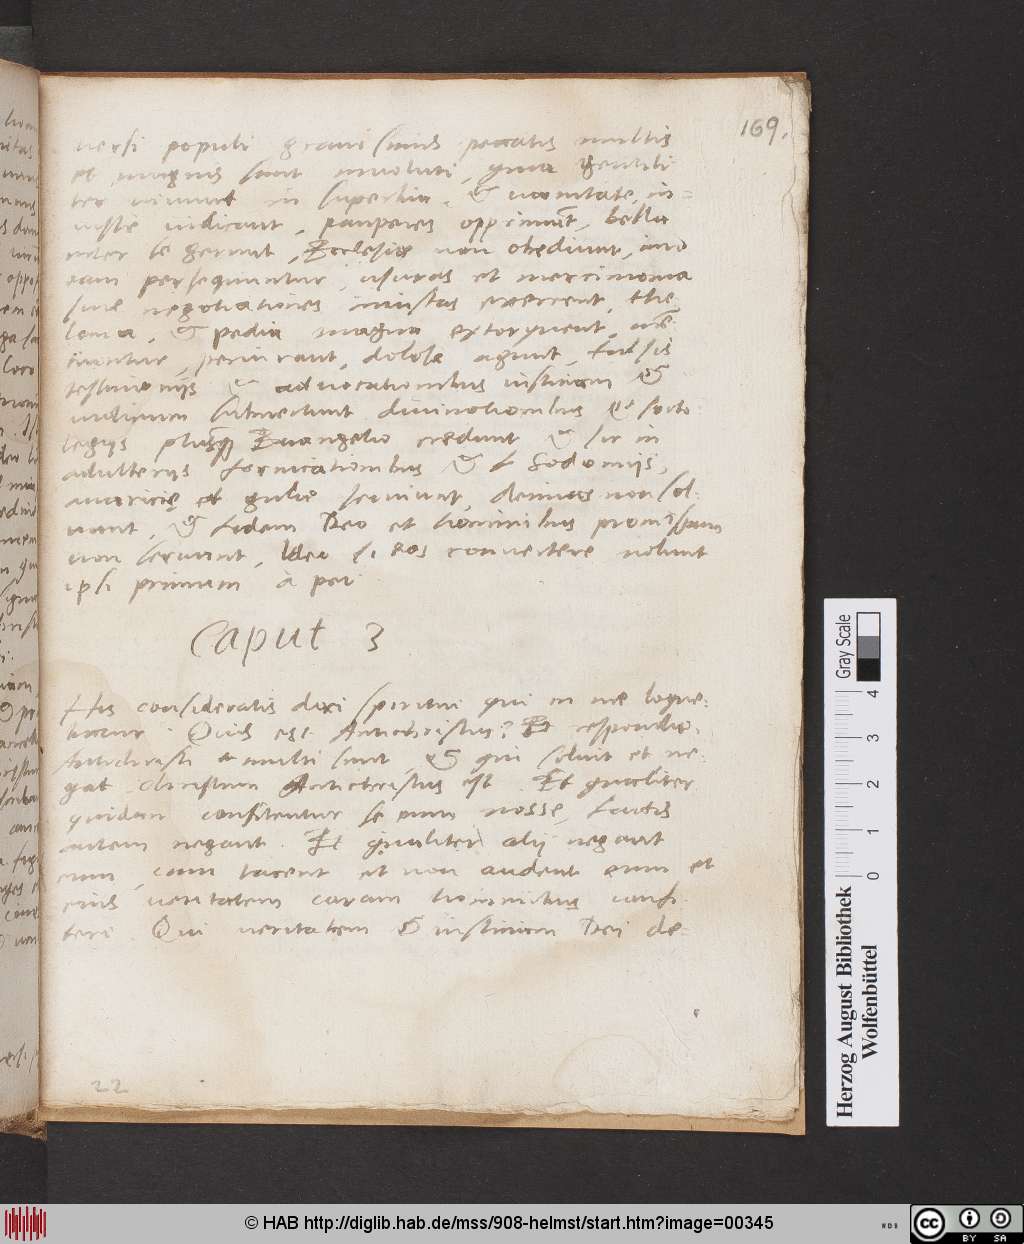 169.
versi populi gravissimis peccatis multis
et magnis sunt involuti, quia gentili
ter vivunt in superbia, & vanitate, in=
iuste iudicant, pauperes opprimūt, bella
inter se gerunt, Ecclesiae non obediunt, imo
eam persequuntur, usuras et mercimonia
sive negotiationes iniustas exercent, the
lonia, & pedia magna extorquent, mē=
tiuntur, periurant, dolose agunt, falsis
testimoniis & advocationibus iustitiam &
iudicium subvertunt divinationibus & sorti
legijs plusque Evangelio credunt & sic in
adulterijs fornicationibus & Sodomijs,
avaricię et gulae serviunt, decimas non sol=
vunt, & fidem Deo et hominibus promissam
non servant, Ideo si eos convertere nolunt
ipsi primum a per
Caput 3
His consideratis dixi spiritui qui in me loque=
batur. Quis est Antichristus? Et respondit.
Antichristi multi sunt, & qui solvit et ne=
gat christum Antichristus est. Et qualiter
quidam confitentur se eum nosse, factis
autem negant. Et qualiter alij negant
eum, cum tacent et non audent eum et
eius veritatem coram hominibus confi=
teri. Qui veritatem & iustitiam Dei de=
22
Herzog August Bibliothek
Wolfenbüttel
0 1 2 3 4
Gray Scale
© HAB http://diglib.hab.de/mss/908-helmst/start.htm?image=00345
WDB
cc BY SA